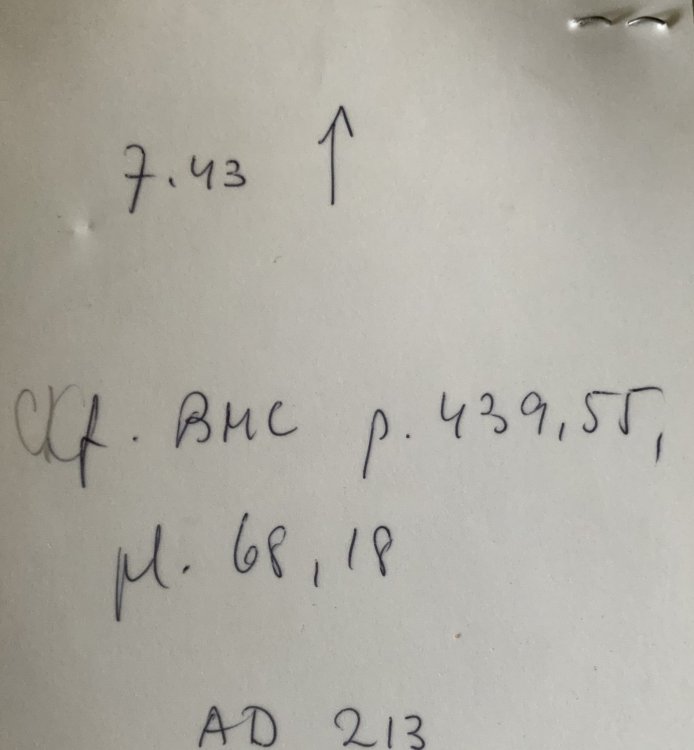 7.43 ↑
Cf. BMC p. 439,55,
pl. 68,18
AD 213